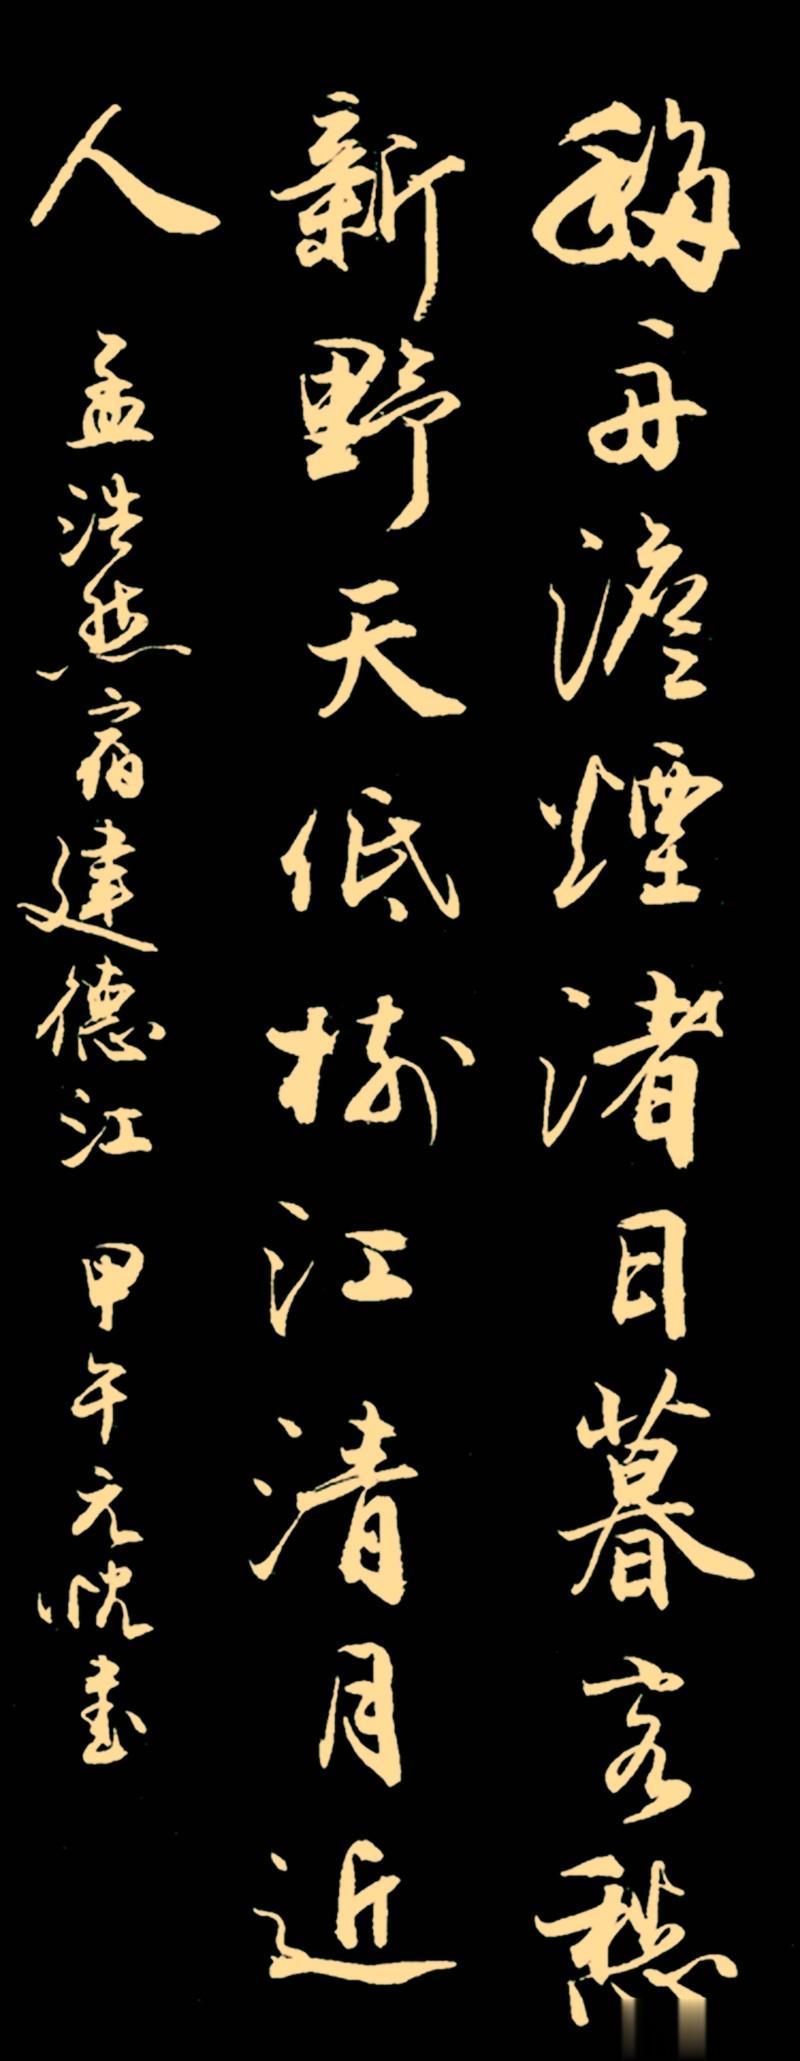 移舟澹煙渚日暮客愁
新野天低樹江清月近
人 孟浩然宿建德江 甲午元忱書